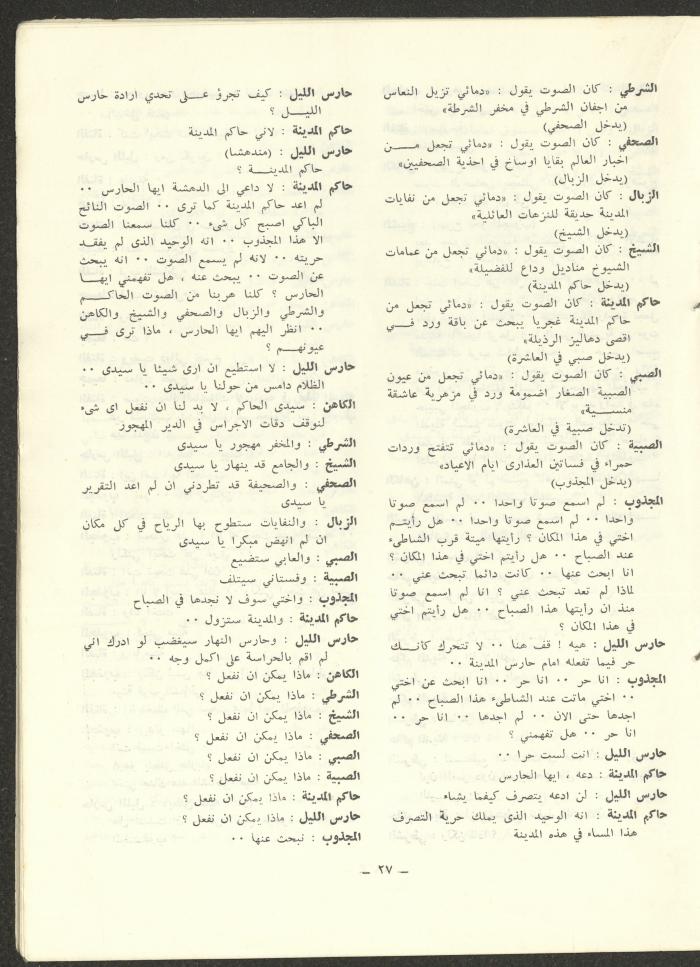 الشرطي : كان الصوت يقول : «دمائي تزيل النعاس
من اجفان الشرطي في مخفر الشرطة»
(يدخل الصحفي)
الصحفي : كان الصوت يقول : «دمائي تجعل مـــن
اخبار العالم بقايا اوساخ في احذية الصحفيين»
(يدخل الزبال)
الزبال : كان الصوت يقول : «دمائي تجعل من نفايات
المدينة حديقة للنزهات العائلية»
(يدخل الشيخ)
الشيخ : كان الصوت يقول : «دمائي تجعل من عمامات
الشيوخ مناديل وداع للفضيلة»
(يدخل حاكم المدينة)
حاكم المدينة : كان الصوت يقول : «دمائي تجعل من
حاكم المدينة غجريا يبحث عن باقة ورد فـــي
اقصى دهاليز الرذيلة»
(يدخل صبي في العاشرة)
الصبي : كان الصوت يقول : «دمائي تجعل من عيون
الصبية الصغار اضمومة ورد في مزهرية عاشقة
منســـية»
(تدخل صبية في العاشرة)
الصبية : كان الصوت يقول : «دمائي تتفتح وردات
حمراء في فساتين العذارى ايام الاعياد»
(يدخل المجذوب)
المجذوب : لم اسمع صوتا واحدا ٠٠ لم اسمع صوتا
واحدا ٠٠ لم اسمع صوتا واحدا ٠٠ هل رأيتــم
اختي في هذا المكان ؟ رأيتها ميتة قرب الشاطىء
عند الصباح ٠٠ هل رأيتم اختي في هذا المكان ؟
انا ابحث عنها ٠٠ كانت دائما تبحث عني ٠٠
لماذا لم تعد تبحث عني ؟ انا لم اسمع صوتا
منذ ان رأيتها هذا الصباح ٠٠ هل رأيتم اختي
في هذا المكان ؟
حارس الليل : هيه ! قف هنا ٠٠ لا تتحرك كأنـــك
حر فيما تفعله امام حارس المدينة ٠٠
المجذوب : انا حر ٠٠ انا حر ٠٠ انا ابحث عن اختي
٠٠ اختي ماتت عند الشاطىء هذا الصباح ٠٠ لم
اجدها حتى الان ٠٠ لم اجدها ٠٠ انا حر ٠٠
انا حر ٠٠ هل تفهمني ؟
حارس الليل : انت لست حرا ٠٠
حاكم المدينة : دعه ، ايها الحارس
حارس الليل : لن ادعه يتصرف كيفما يشاء
حاكم المدينة : انه الوحيد الذى يملك حرية التصرف
هذا المساء في هذه المدينة
حارس الليل : كيف تجرؤ عـــلى تحدي ارادة حارس
الليـــل ؟
حاكم المدينة : لاني حاكم المدينة
حارس الليل : (مندهشا)
حاكم المدينـــة ؟
حاكم المدينة : لا داعي الى الدهشة ايها الحارس ٠٠
لم اعد حاكم المدينة كما ترى ٠٠ الصوت النائح
الباكي اصبح كل شىء ٠٠ كلنا سمعنا الصوت
الا هذا المجذوب ٠٠ انه الوحيد الذى لم يفقـد
حريته ٠٠ لانه لم يسمع الصوت ٠٠ انه يبحث
عن الصوت ٠٠ يبحث عنه ، هل تفهمني ايهـــا
الحارس ؟ كلنا هربنا من الصوت الحاكـــم
والشرطي والزبال والصحفي والشيخ والكاهن
٠٠ انظر اليهم ايها الحارس ، ماذا ترى فـــي
عيونهـــم ؟
حارس الليل : لا استطيع ان ارى شيئا يا سيدى ٠٠
الظلام دامس من حولنا يا سيدى ٠٠
الكاهن : سيدى الحاكم ، لا بد لنا ان نفعل اى شىء
لنوقف دقات الاجراس في الدير المهجور
الشرطي : والمخفر مهجور يا سيدى
الشيخ : والجامع قد ينهار يا سيدى
الصحفي : والصحيفة قد تطردني ان لم اعد التقرير
يا سيدى
الزبال : والنفايات ستطوح بها الرياح في كل مكان
ان لم انهض مبكرا يا سيدى
الصبي : والعابي ستضيع
الصبية : وفستاني سيتلف
المجذوب : واختي سوف لا نجدها في الصباح
حاكم المدينة : والمدينة ستزول ٠٠
حارس الليل : وحارس النهار سيغضب لو ادرك اني
لم اقم بالحراسة على اكمل وجه ٠٠
الكاهن : ماذا يمكن ان نفعل ؟
الشرطي : ماذا يمكن ان نفعل ؟
الشيخ : ماذا يمكن ان نفعل ؟
الصحفي : ماذا يمكن ان نفعل ؟
الصبي : ماذا يمكن ان نفعل ؟
الصبية : ماذا يمكن ان نفعل ؟
حاكم المدينة : ماذا يمكن ان نفعل ؟
حارس الليل : ماذا يمكن ان نفعل ؟
المجذوب : نبحث عنها ٠٠
– ٢٧ –